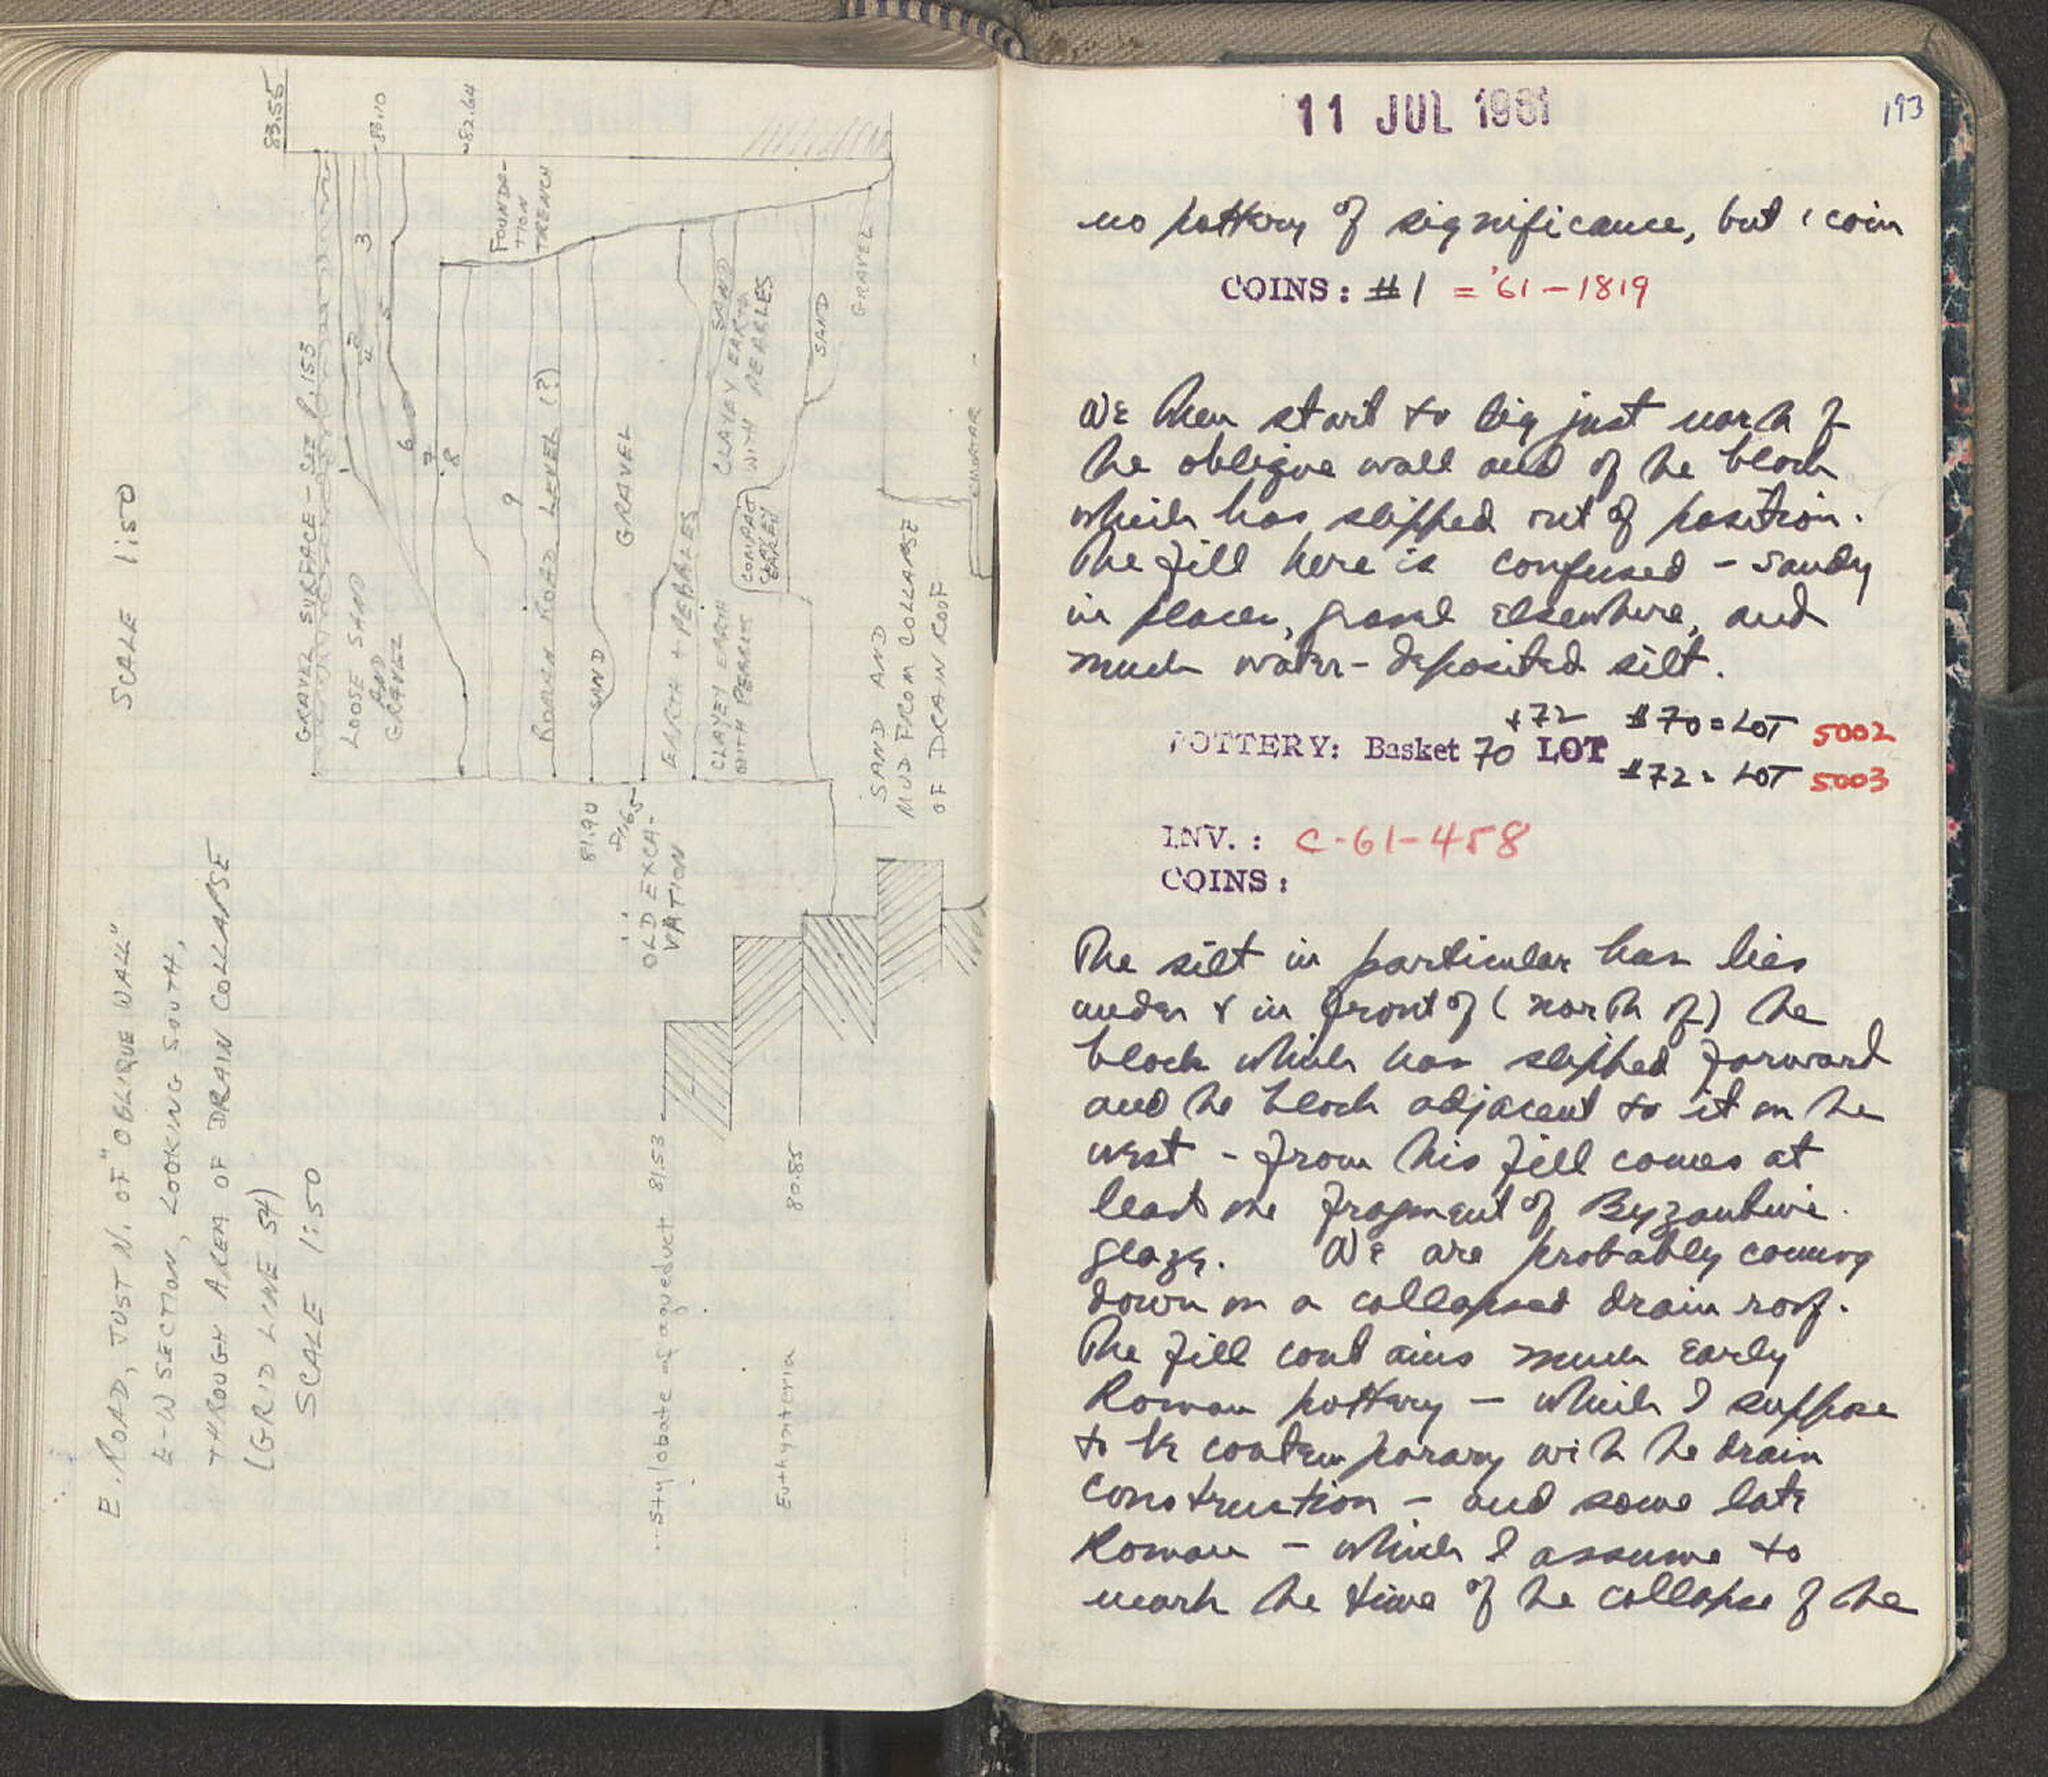 E. ROAD, JUST N. OF "OBLIQUE WALL"
E-W SECTION, LOOKING SOUTH,
THROUGH AREA OF DRAIN COLLAPSE
(GRID LINE 54)
SCALE 1:50
SCALE 1:50
83.55
83.10
82.64
GRAVEL SURFACE - SEE P. 153
LOOSE SAND
AND
GRAVEL
1
2
3
4
5
6
7
8
9
FOUNDA-
TION
TRENCH
ROMAN ROAD LEVEL (?)
SAND
GRAVEL
EARTH + PEBBLES
CLAYEY EARTH
WITH PEBBLES
SAND
CLAYEY EARTH
WITH PEBBLES
COMPACT
CLAYEY
EARTH
SAND
GRAVEL
81.90
81.65
OLD EXCA-
VATION
SAND AND
MUD FROM COLLAPSE
OF DRAIN ROOF
stylobate of aqueduct 81.53
80.85
Euthynteria
11 JUL 1961
193
no pottery of significance, but 1 coin
COINS: #1 = '61-1819
We then start to dig just north of
the oblique wall and of the block
which has slipped out of position.
The fill here is confused - sandy
in places, gravel elsewhere, and
much water-deposited silt.
+72 #70 = LOT 5002
POTTERY: Basket 70 LOT
#72 = LOT 5003
INV.: C-61-458
COINS:
The silt in particular has lies
under & in front of (north of) the
block which has slipped forward
and the block adjacent to it on the
west - from this fill comes at
least one fragment of Byzantine
glaze. We are probably coming
down on a collapsed drain roof.
The fill contains much early
Roman pottery - which I suppose
to be contemporary with the drain
construction - and some late
Roman - which I assume to
mark the time of the collapse of the